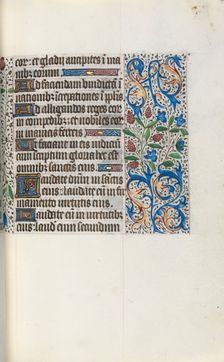 eor: et gladij ancipites i ma
nibz eorum
Ad faciendam vindictā i
nationibz: icrepationes i pplīs
Ad alligandos reges eor
in compedibz: et nobiles eor
in manicis ferreis
Ut faciant in eis iudiciū
conscriptum: gloria hec est
omnibz sanctis eius
Laudate dnm in sāctis
eius: laudate eum in fir
mamento virtutis eius.
Laudate eū in virtutibz
eius: laud eum secundum